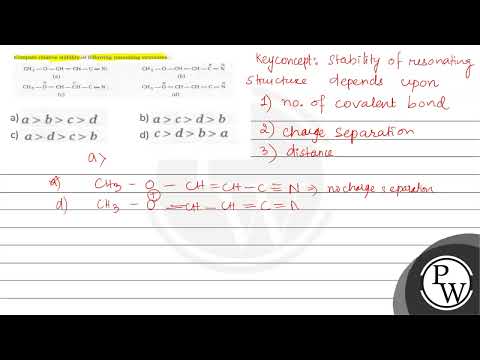 Compare relative stability of following resonating structures :
CH₃ – O – CH = CH – C ≡ N:
(a)
(b)
(c)
(d)
a) a > b > c > d
b) a > c > d > b
c) a > d > c > b
d) c > d > b > a
Key concept: Stability of resonating
structure depends upon
1) no. of covalent bond
2) charge separation
3) distance
a >
a) CH₃ – O – CH = CH – C ≡ N ⇒ no charge separation
d) CH₃ – O⊕ = CH – CH = C = N
P
W